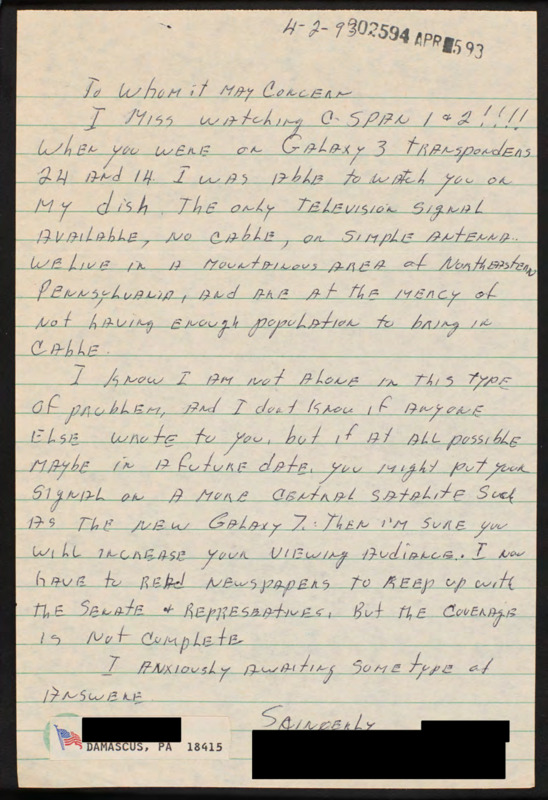 4-2-93
002594 APR 593
To Whom it May Concern
I Miss watching C-SPAN 1 & 2!!!!
When you were on Galaxy 3 transponders
24 and 14. I was able to watch you on
my dish. The only television signal
available, no cable, or simple antenna.
We live in a mountainous area of Northeastern
Pennsylvania, and are at the mercy of
not having enough population to bring in
cable.
I know I am not alone in this type
of problem, and I dont know if anyone
else wrote to you, but if at all possible
maybe in a future date, you might put your
signal on a more central satalite such
as the new Galaxy 7. Then I'm sure you
will increase your viewing audiance. I now
have to read newspapers to keep up with
the Senate & Represbatives, but the coverage
is not complete
I anxiously awaiting some type of
answere
Saincerly
DAMASCUS, PA 18415